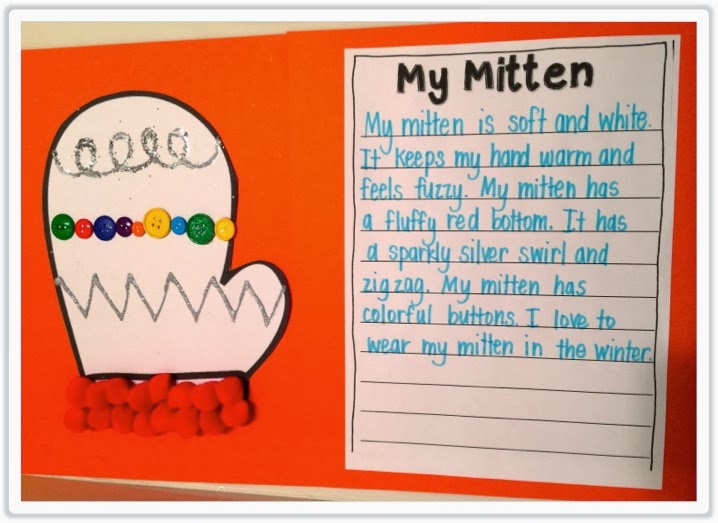 My Mitten
My mitten is soft and white.
It keeps my hand warm and
feels fuzzy. My mitten has
a fluffy red bottom. It has
a sparkly silver swirl and
zigzag. My mitten has
colorful buttons. I love to
wear my mitten in the winter.